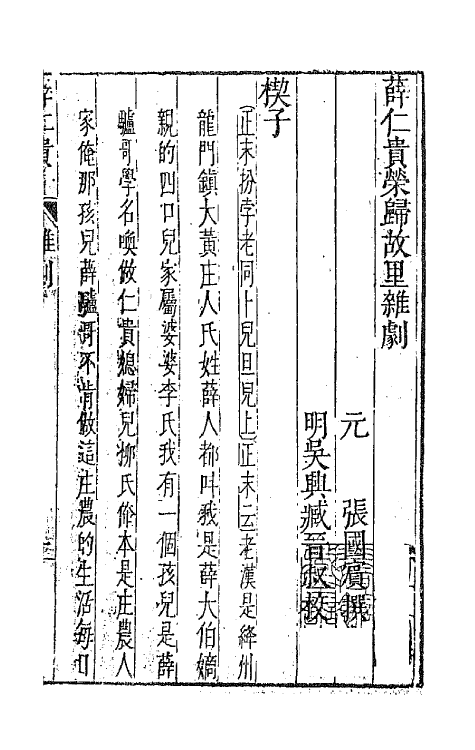 薛仁貴榮歸故里雜劇
元 張國賓撰
明吳興臧晉叔校
楔子
正末扮孛老同卜兒旦兒上正末云老漢是絳州
龍門鎮大黃庄人氏姓薛人都叫我是薛大伯嫡
親的四口兒家屬婆婆李氏我有一個孩兒是薛
驢哥學名喚做仁貴媳婦兒柳氏俺本是庄農人
家俺那孩兒薛驢哥不肯做這庄農的生活每日
薛仁貴 雜劇